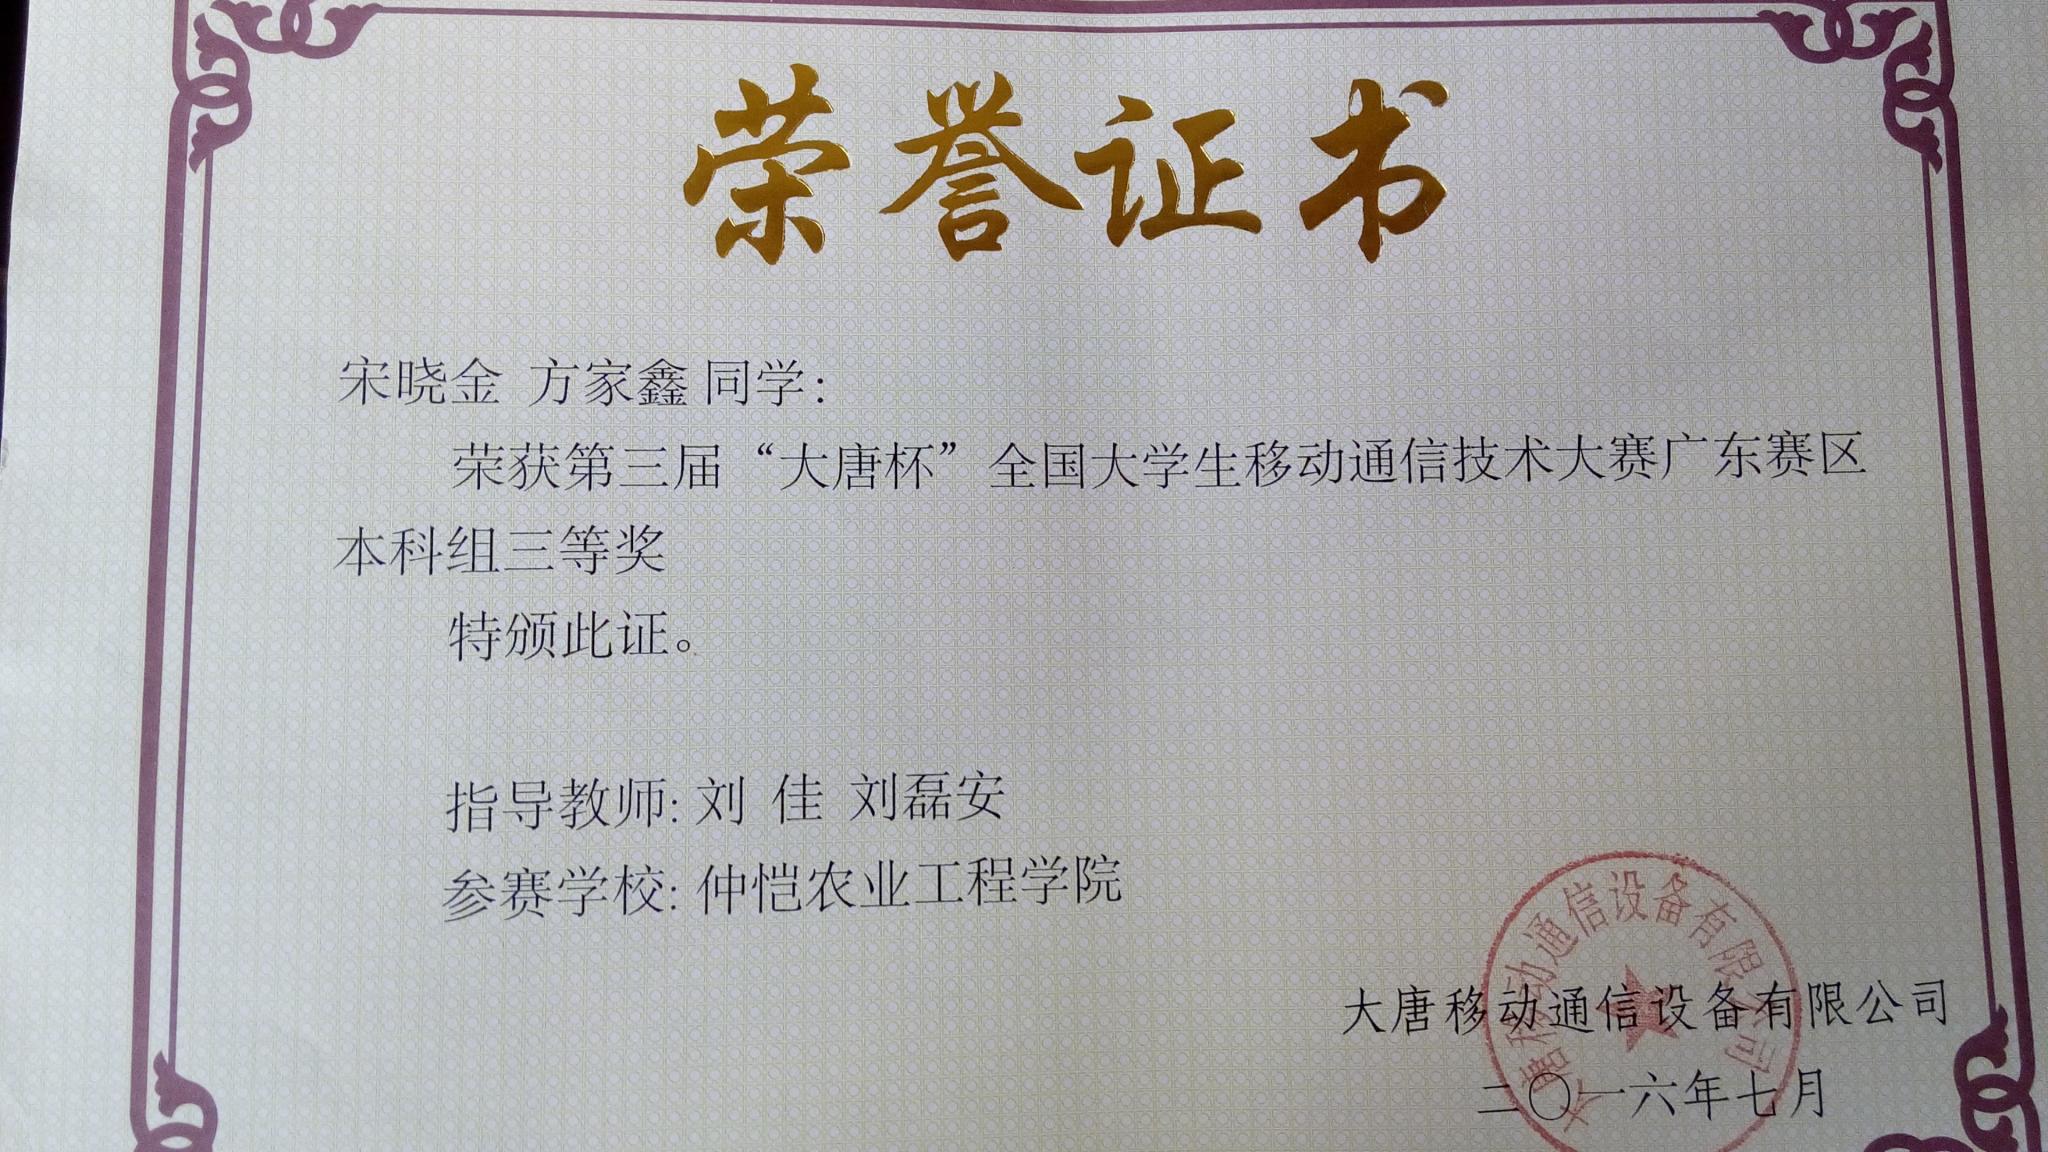 荣誉证书
宋晓金 方家鑫 同学：
荣获第三届“大唐杯”全国大学生移动通信技术大赛广东赛区
本科组三等奖
特颁此证。
指导教师: 刘 佳 刘磊安
参赛学校: 仲恺农业工程学院
大唐移动通信设备有限公司
二〇一六年七月
大唐移动通信设备有限公司